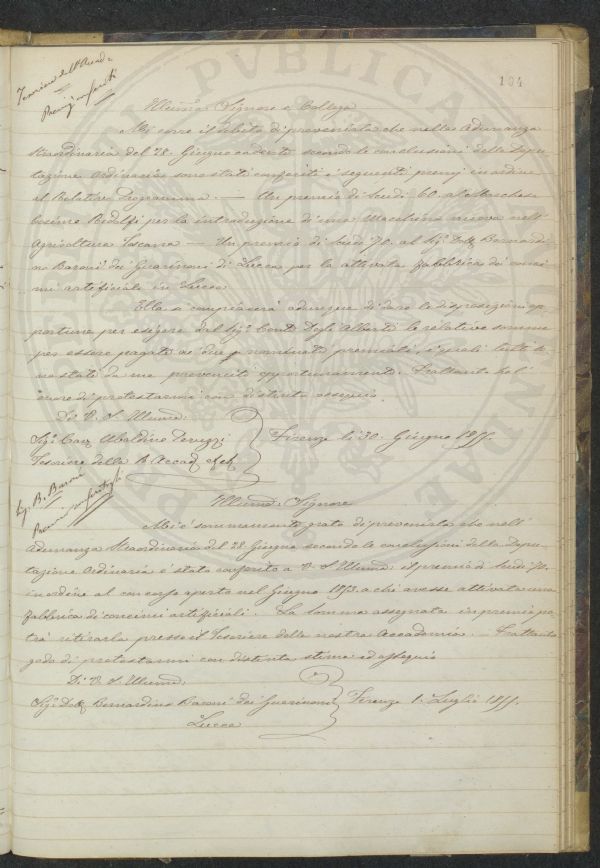 Tesoriere dell'Accad.
Premj conferiti
134
Illustrissimo Signore e Collega
Mi corre il debito di prevenirla che nella Adunanza
straordinaria del 28. Giugno cadente secondo le conclusioni della Depu-
tazione Ordinaria sono stati conferiti i seguenti premj in ordine
al Relativo Programma. — Un premio di Scudi 60. al Marchese
Cosimo Ridolfi per la introduzione di una Macchina nuova nell'
Agricoltura Toscana — Un premio di Scudi 70. al Sig. Dott. Bernardi-
no Baroni dei Guarinoni di Lucca per la attivata fabbrica di conci-
mi artificiali in Lucca
Ella si compiacerà adunque di dare le disposizioni op-
portune per esigere dal Sig. Conte Degli Alberti le relative somme
per essere pagate ai due nominati premiati, i quali
stati da me prevenuti opportunamente. Frattanto ho l'
onore di protestarmi con distinto ossequio
Di V. S. Illuma.
Sig. Cav. Ubaldino Peruzzi
Firenze li 30. Giugno 1855.
Tesoriere della R. Accad. de'
Sig. B. Baroni
Premio conferitogli
Illumo. Signore
Mi è sommamente grato di prevenirla che nell'
Adunanza Straordinaria del 28 Giugno secondo le conclusioni della Depu-
tazione Ordinaria è stato conferito a V. S. Illuma. il premio di Scudi 70.
in ordine al concorso aperto nel Giugno 1853. a chi avesse attivata una
fabbrica di concimi artificiali. La somma assegnata in premio po-
trà ritirarla presso il Tesoriere della nostra Accademia. — Frattanto
godo di protestarmi con distinta stima ed ossequio
Di V. S. Illuma.
Sig. Dott. Bernardino Baroni dei Guarinoni
Firenze 1. Luglio 1855.
Lucca